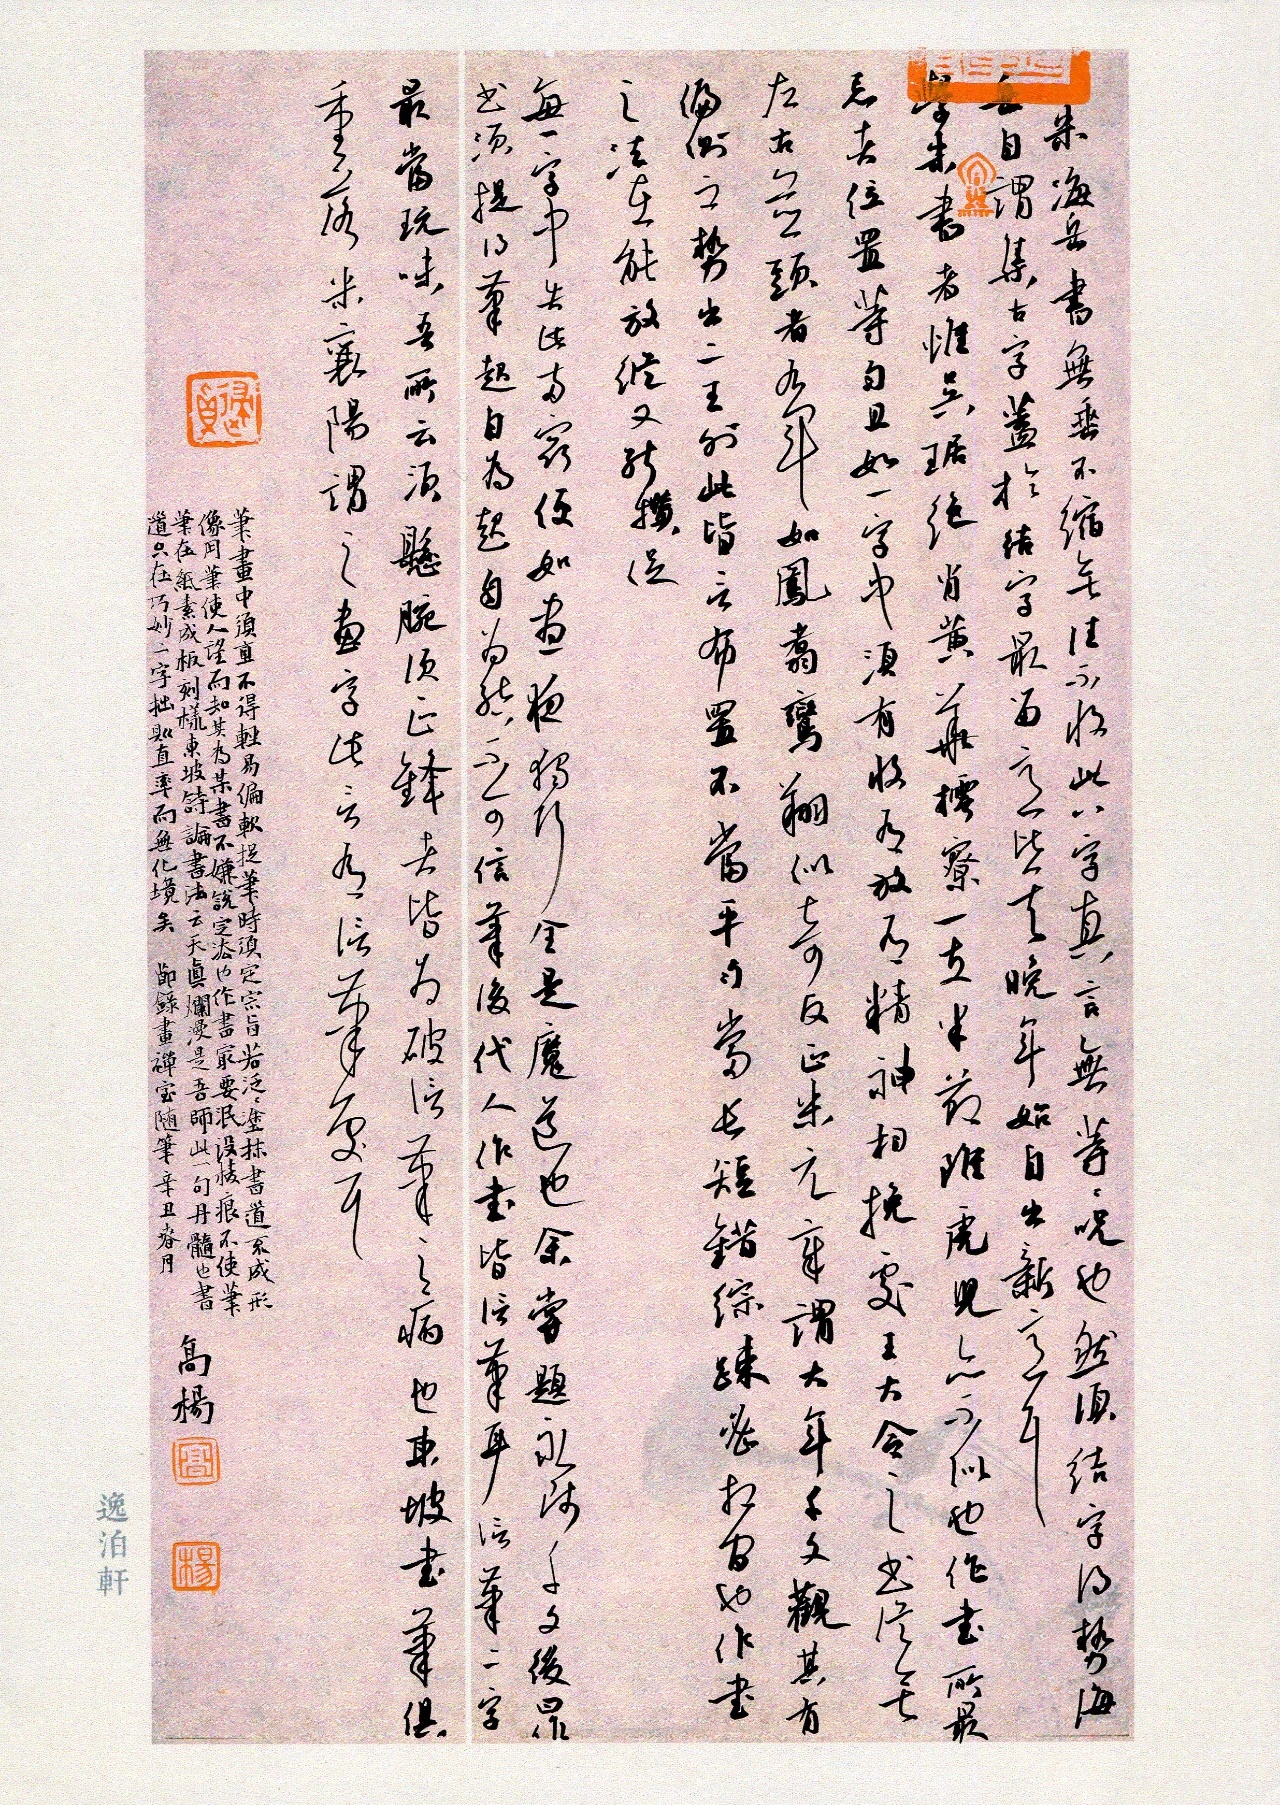 米海岳書無垂不縮無往不收此八字真言無等等呪也然須結字得勢海
岳自謂集古字蓋於結字最留意比其晚年始自出新意耳
學米書者惟吳琚絕肖黃華樗寮一支半節雖虎兒亦不似也作書所最
忌者位置等勻且如一字中須有收有放有精神相挽處王大令之書從無
左右並頭者右軍如鳳翥鸞翔似奇反正米元章謂大年千文觀其有
偏側之勢出二王外此皆言布置不當平勻當長短錯綜疎密相間也作書
之法在能放縱又能攢捉
每一字中失此兩竅便如晝夜獨行全是魔道也余嘗題永師千文後曰作
書須提得筆起自為起自為結不可信筆後代人作書皆信筆耳信筆二字
最當玩味吾所云須懸腕須正鋒者皆為破信筆之病也東坡書筆俱
重落米襄陽謂之畫字此言有信筆處耳
筆畫中須直不得輕易偏軟捉筆時須定宗旨若泛泛塗抹書道不成形
像用筆使人望而知其為某書不嫌說定法也作書最要泯沒稜痕不使筆
筆在紙素成板刻樣東坡詩論書法云天真爛漫是吾師此一句丹髓也書
道只在巧妙二字拙則直率而無化境矣 節錄畫禪室隨筆辛丑春月
高楊
高
楊
逸泊軒